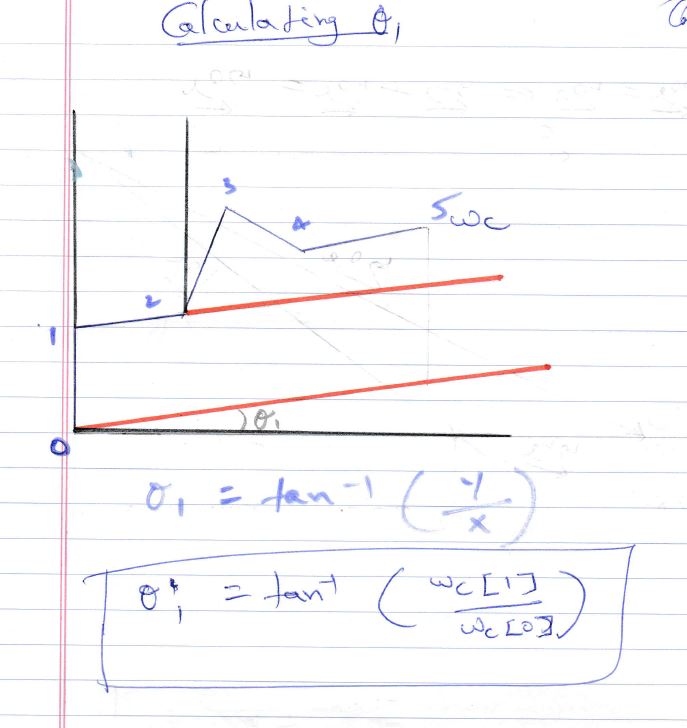 Calculating θ₁
3
4
5 wc
2
1
θ₁
0
θ₁ = tan⁻¹ (y/x)
θ₁ = tan⁻¹ (wc[1]/wc[0])